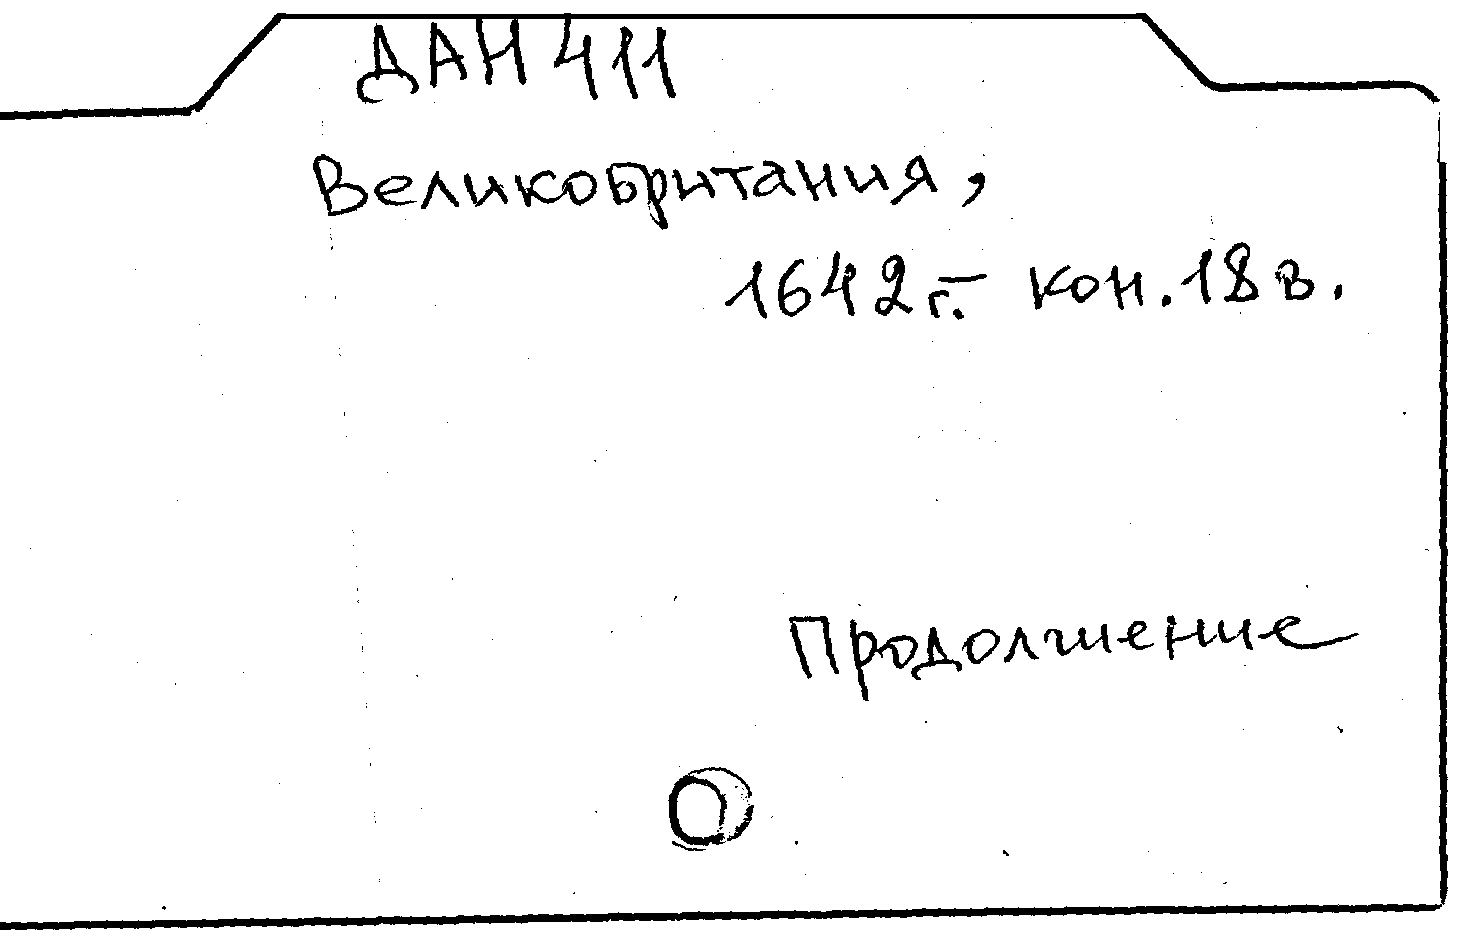 ДАН 411
Великобритания,
1642 г. - кон. 18 в.
Продолжение